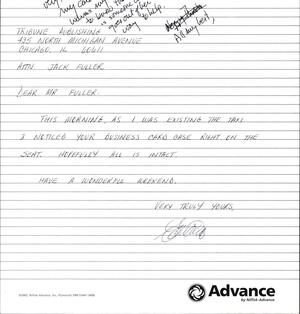 very
my card
to know
is someone
goes out their
way to help.
All my best,
TRIBUNE PUBLISHING
435 NORTH MICHIGAN AVENUE
CHICAGO, IL 60611
ATTN. JACK FULLER
DEAR MR FULLER.
THIS MORNING, AS I WAS EXISTING THE TAXI
I NOTICED YOUR BUSINESS CARD CASE RIGHT ON THE
SEAT. HOPEFULLY ALL IS INTACT.
HAVE A WONDERFUL WEEKEND.
VERY TRULY YOURS,
Advance
by Nilfisk-Advance